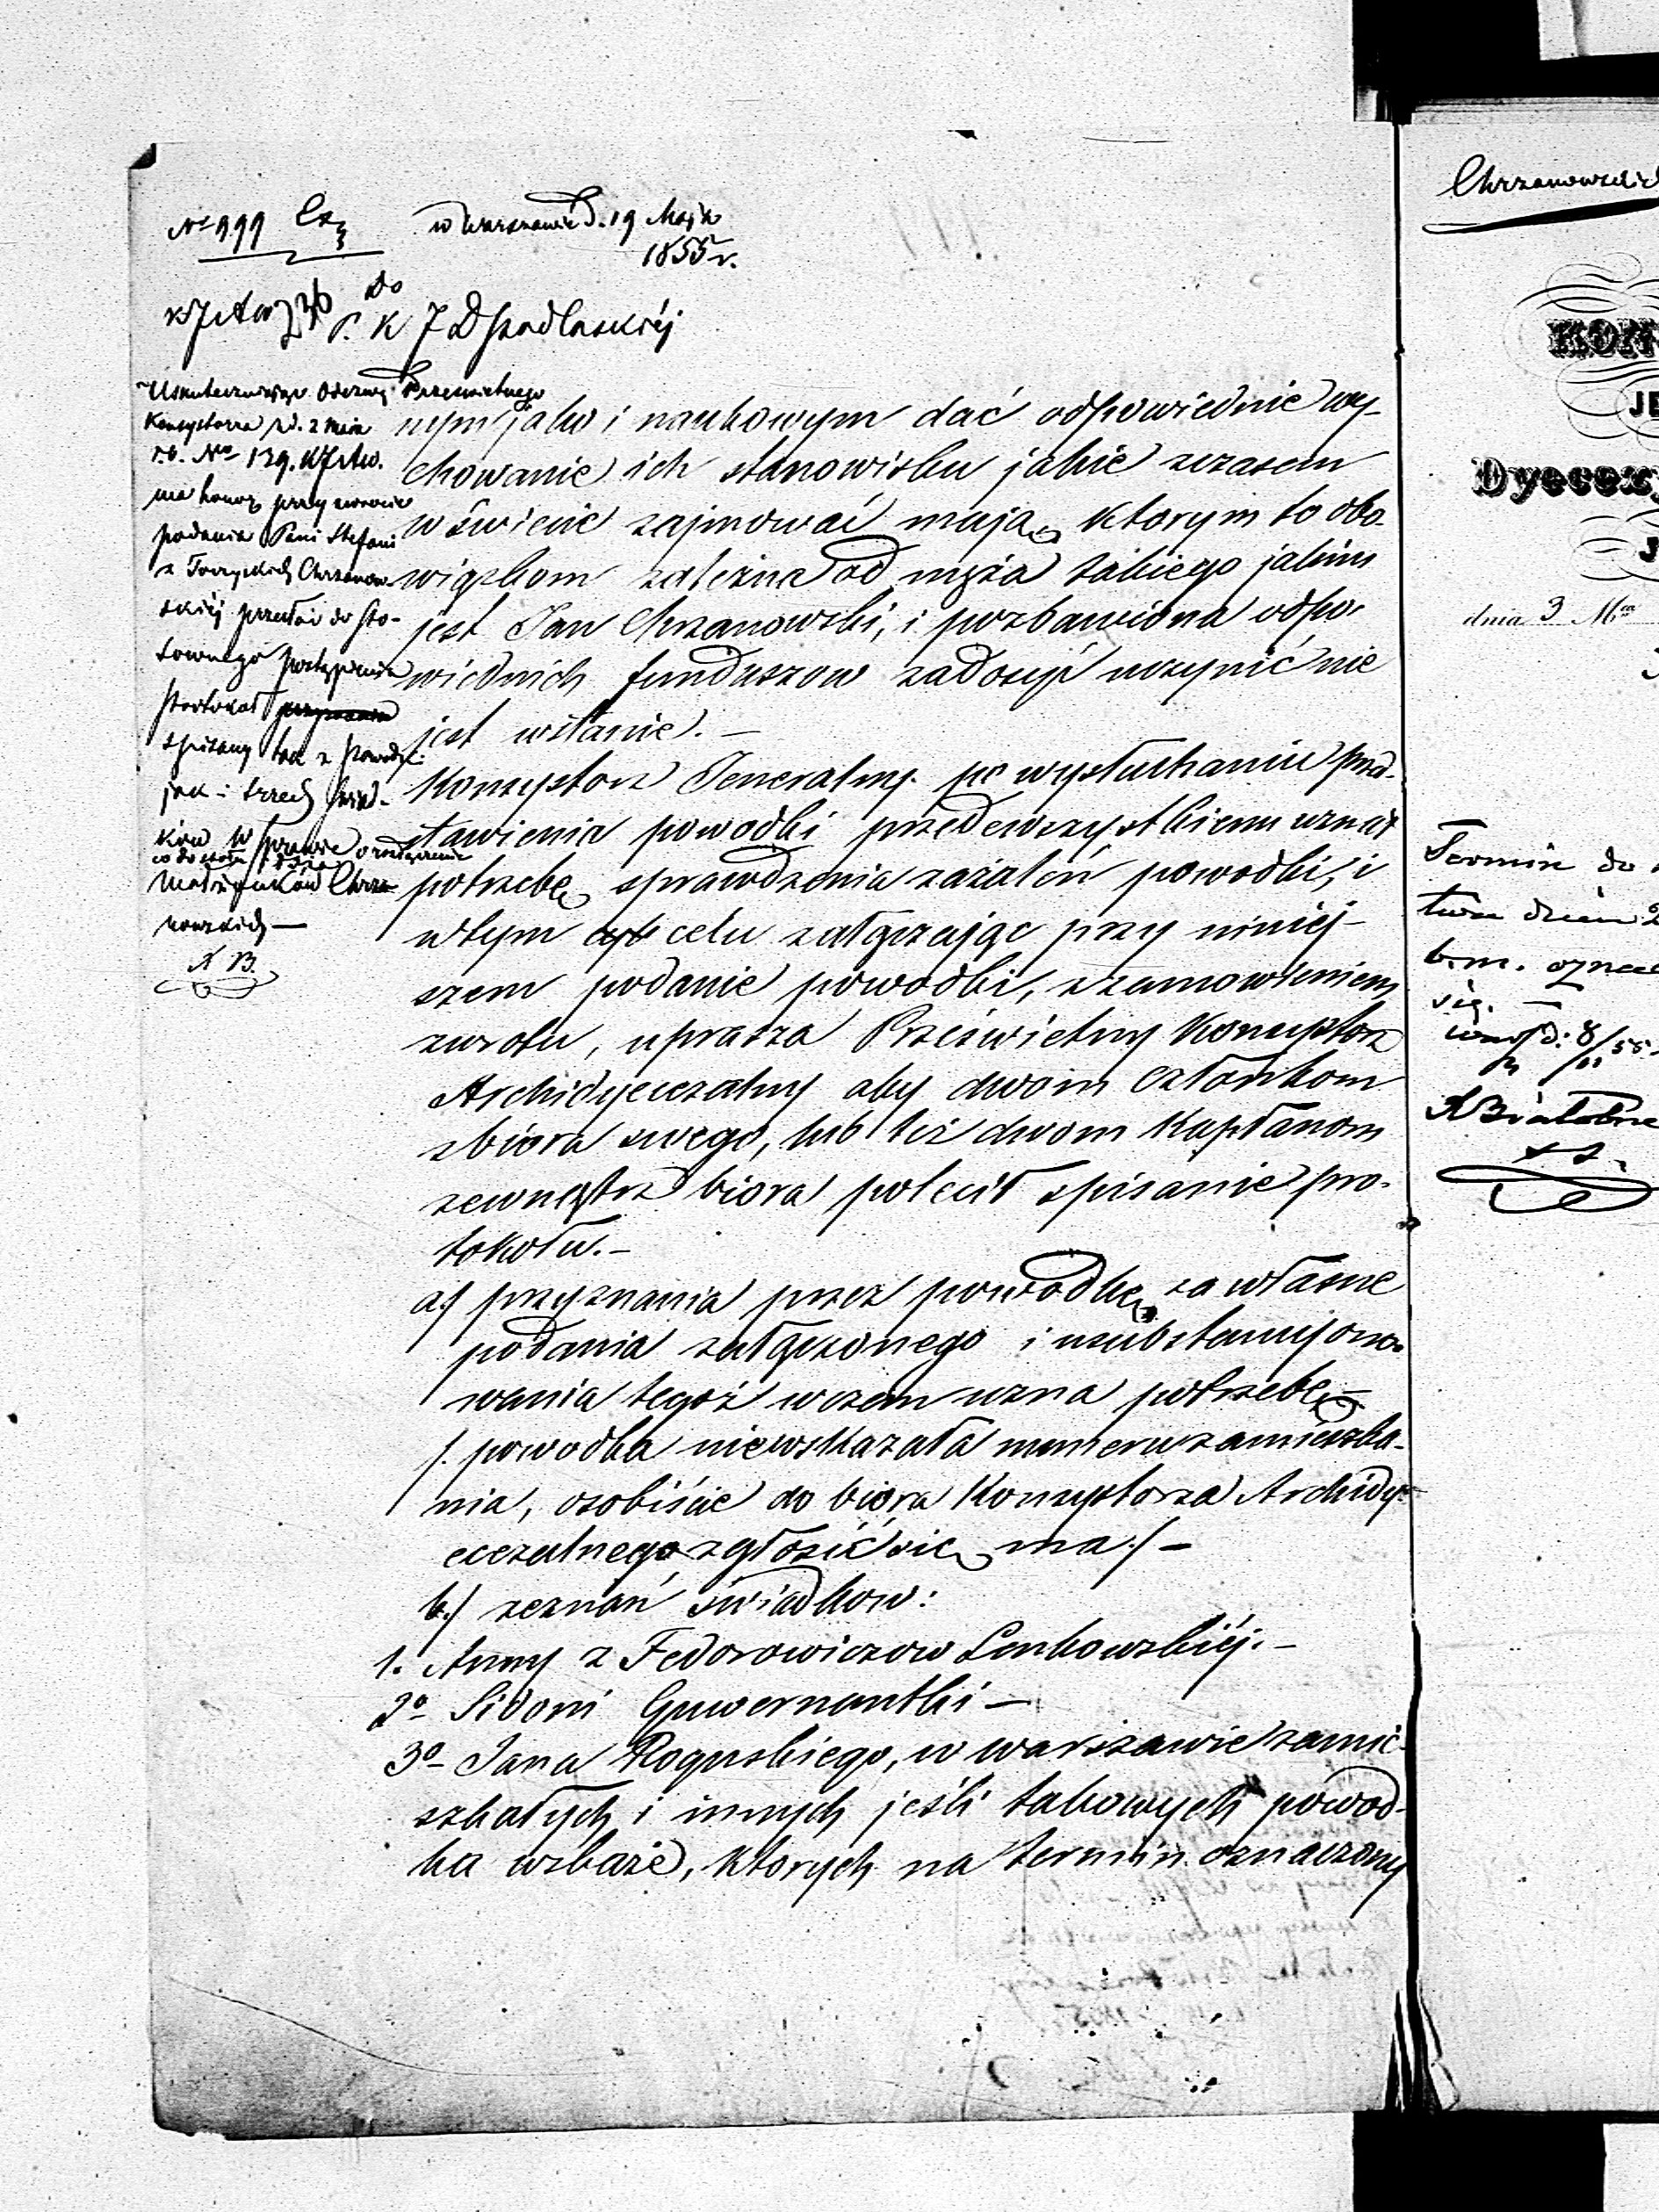 w Warszawie d. 19 Maja
1855 r.
Do
P. K J D Podlaskiéj
Uskuteczniając Odezwę Prześwietnego
Konsystorza z d. 2 Maja
r.b. No 139.
ma honor przy zwrocie
podania Pani Stefani
z Chrzanow-
skiéj przesłać do sto-
sownego postąpienia
protokół
spisany tak z Powódką
jak i trzech świad-
ków w sprawie o rozłączenie
co do stołu i łoża
Małżonków Chrza-
nowskich —
nym jako i naukowym dać odpowiednie wy-
chowanie ich stanowisku jakie z czasem
w świecie zajmować mają, którym to obo-
wiązkom zależna od męża takiego jakim
jest Jan Chrzanowski, i pozbawiona odpo-
wiednich funduszow zadosyć uczynić nie
jest wstanie. —
Konsystorz Jeneralny po wysłuchaniu przed-
stawienia powodki przedewszystkiem uznał
potrzebę sprawdzenia zażaleń powodki, i
wtym celu załączając przy niniej-
szem podanie powodki, z zamowieniem
zwrotu, uprasza Prześwietny Konsystorz
Archidyecezalny aby dwom Członkom
zbiora swego, lub też dwom Kapłanom
zewnątrz biora polecił spisanie pro-
tokołu. —
a/ przyznania przez powodkę za własne
podania załączonego i usubstancjono-
wania tegoż wczem uzna potrzebę —
/. powodka niewskazała numeru zamieszka-
nia, osobiście do biora Konsystorza Archidy-
ecezalnego zgłosić się ma / —
b./ zeznań świadkow:
1. Anny z Fedorowiczow Lenkowskiéj. —
2o Sidoni Guwernantki —
3o Jana Rogurskiego, w Warszawie zamie-
szkałych i innych jeśli takowych powod-
ka wskaże, ktorych na termin oznaczony
Chrzanowskich
dnia 3 Mca
Termin do
b.m.
się. —